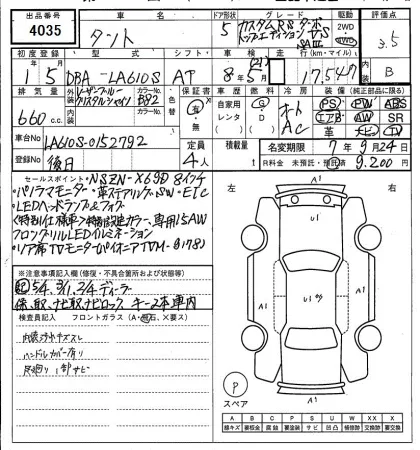 出品番号 4035
車名 タント
ドア形状 5
グレード カスタムRSターボ トップエディションVS SAⅢ
駆動 2WD 4WD
評価点 3.5 B
初度登録 15
型式 DBA-LA610S
シフト AT
車検 8年5月
走行(km・マイル) 17,547
排気量 660cc
外装 レーザーブルークリスタルシャイン B82
内装
色替
保証書 有・無
自家用 レンタ
燃料 G D
冷房 オートAC
装備(純正部品に限る) PS PW ABS エアB AW SR 革 ナビ TV
車台No LA610S-0152792
登録No 後日
定員 4人
積載量 t
名変期限 7年9月24日
R料金 未預託・預託済 9,200円
セールスポイント ・NSZN-X69D 8インチ
・パノラマモニター・革ステアリングSW・ETC
・LEDヘッドランプ&フォグ
<特別仕様車>特別設定カラー、専用15AW
フロントグリルLEDイルミネーション
・リア席TVモニターパイオニアTVM-
※注意事項記入欄(修復・不具合箇所および状態等)
記 5/4, 3/1, 2/4 ディーラー
保、取、ナビ取、ナビロック、キー2本車内
検査員記入 フロントガラス(A・飛石・X要ス)
内装 スレ
ハンドルカバー有り
足廻り1部サビ
左
右
A1
A1
U1
U3
A1
A1
A1
P
スペア
A B C P S U W X XX
線キズ 板金 サビ 凹凸 補修跡 要交換 交換済